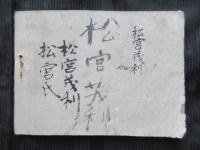 松宮茂利
松宮茂利
松宮茂利
松宮氏